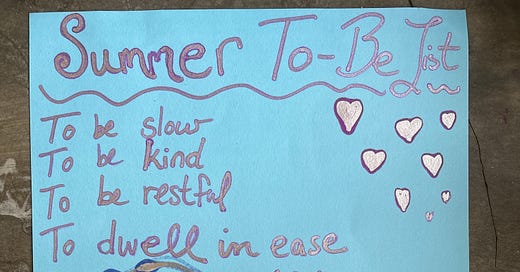 Summer To-Be List
To be slow
To be kind
To be restful
To dwell in ease